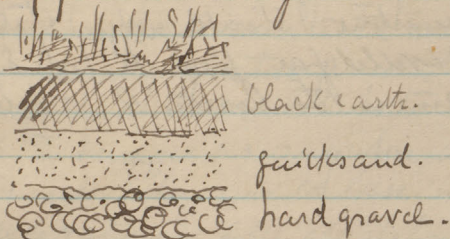 black earth.
quicksand.
hard gravel.